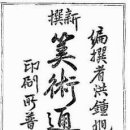 編撰者洪鍾旭
新撰
筭術通
印刷所普